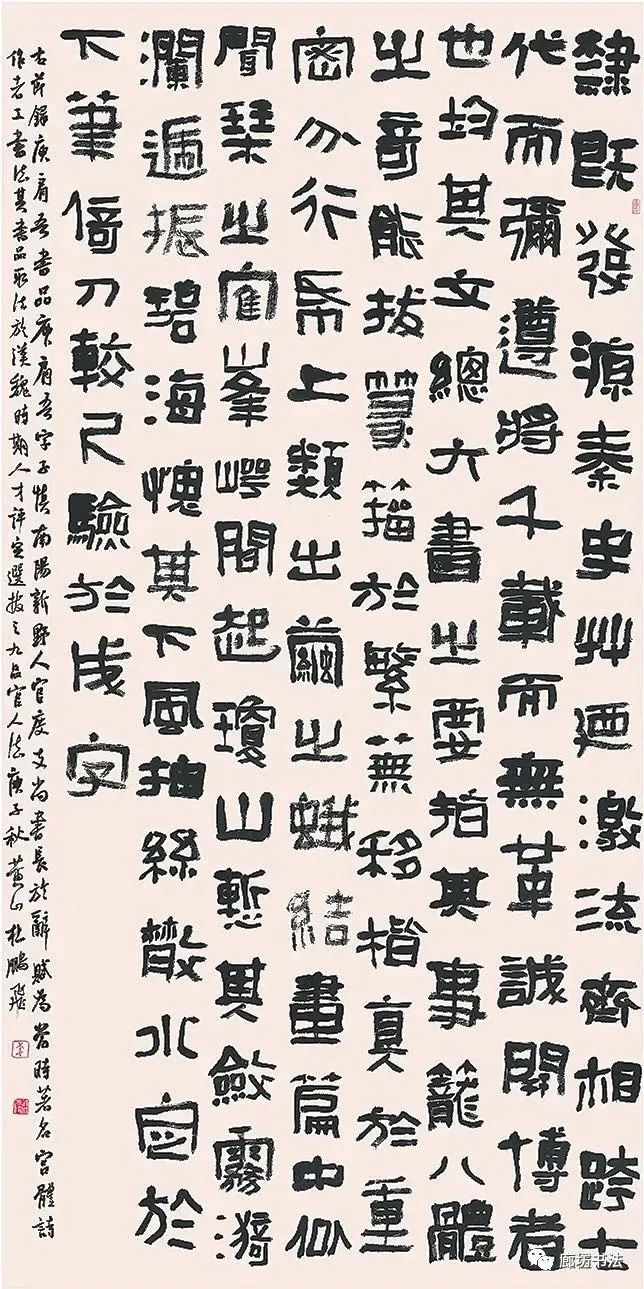 隸既發源秦史艸廼激流齊相跨七
代而彌遵將千載而無革誠開博者
也均其文總六書之要指其事籠八體
之奇能拔篆籀於繁蕪移楷真於重
密分行帋上類出繭之蛾結畫篇中似
聞琴之寉峯崿間起瓊山慙其斂霧漪
瀾遞振碧海愧其下風抽絲散水定於
下筆倚刀較尺驗於成字
右節錄庾肩吾書品庾肩吾字子慎南陽新野人官度支尚書長於辭賦為當時著名宮體詩
作者工書法其書品取法於漢魏時期人才評定選拔之九品官人法庚子秋黃山杜鵬飛
廊坊书法